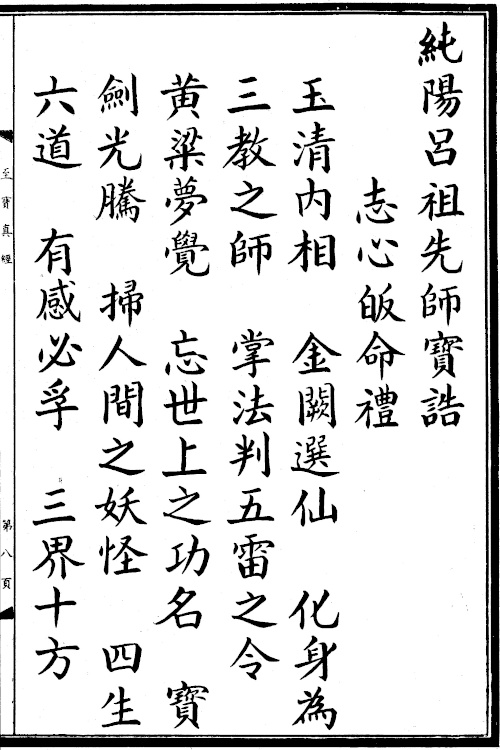 純陽呂祖先師寶誥
志心皈命禮
玉清內相　金闕選仙　化身為
三教之師　掌法判五雷之令
黃粱夢覺　忘世上之功名　寶
劍光騰　掃人間之妖怪　四生
六道　有感必孚　三界十方
至寶真經
第八頁